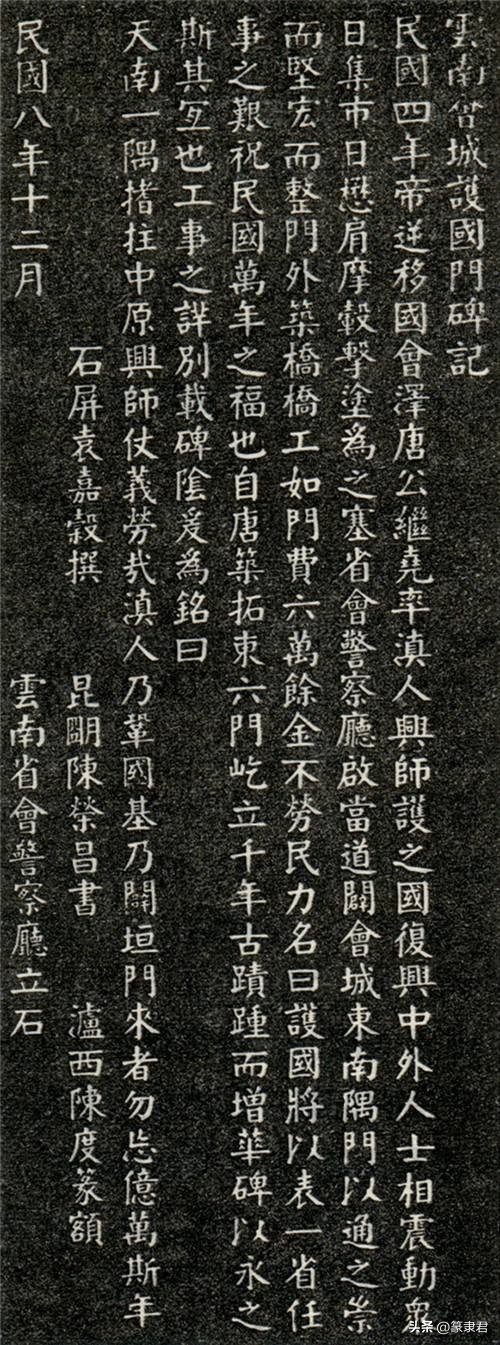 雲南省城護國門碑記
民國四年帝逆移國會澤唐公繼堯率滇人興師護之國復興中外人士相震動衆
日集市日懋肩摩轂擊塗為之塞省會警察廳啟當道闢會城東南隅門以通之崇
而堅宏而整門外築橋橋工如門費六萬餘金不勞民力名曰護國將以表一省任
事之艱祝民國萬年之福也自唐築拓東六門屹立千年古蹟踵而增華碑以永之
斯其宜也工事之詳別載碑陰爰為銘曰
天南一隅搘拄中原興師仗義勞哉滇人乃鞏國基乃闢垣門來者勿忘億萬斯年
石屏袁嘉穀撰 昆明陳榮昌書 瀘西陳度篆額
民國八年十二月 雲南省會警察廳立石
头条 @篆隶君